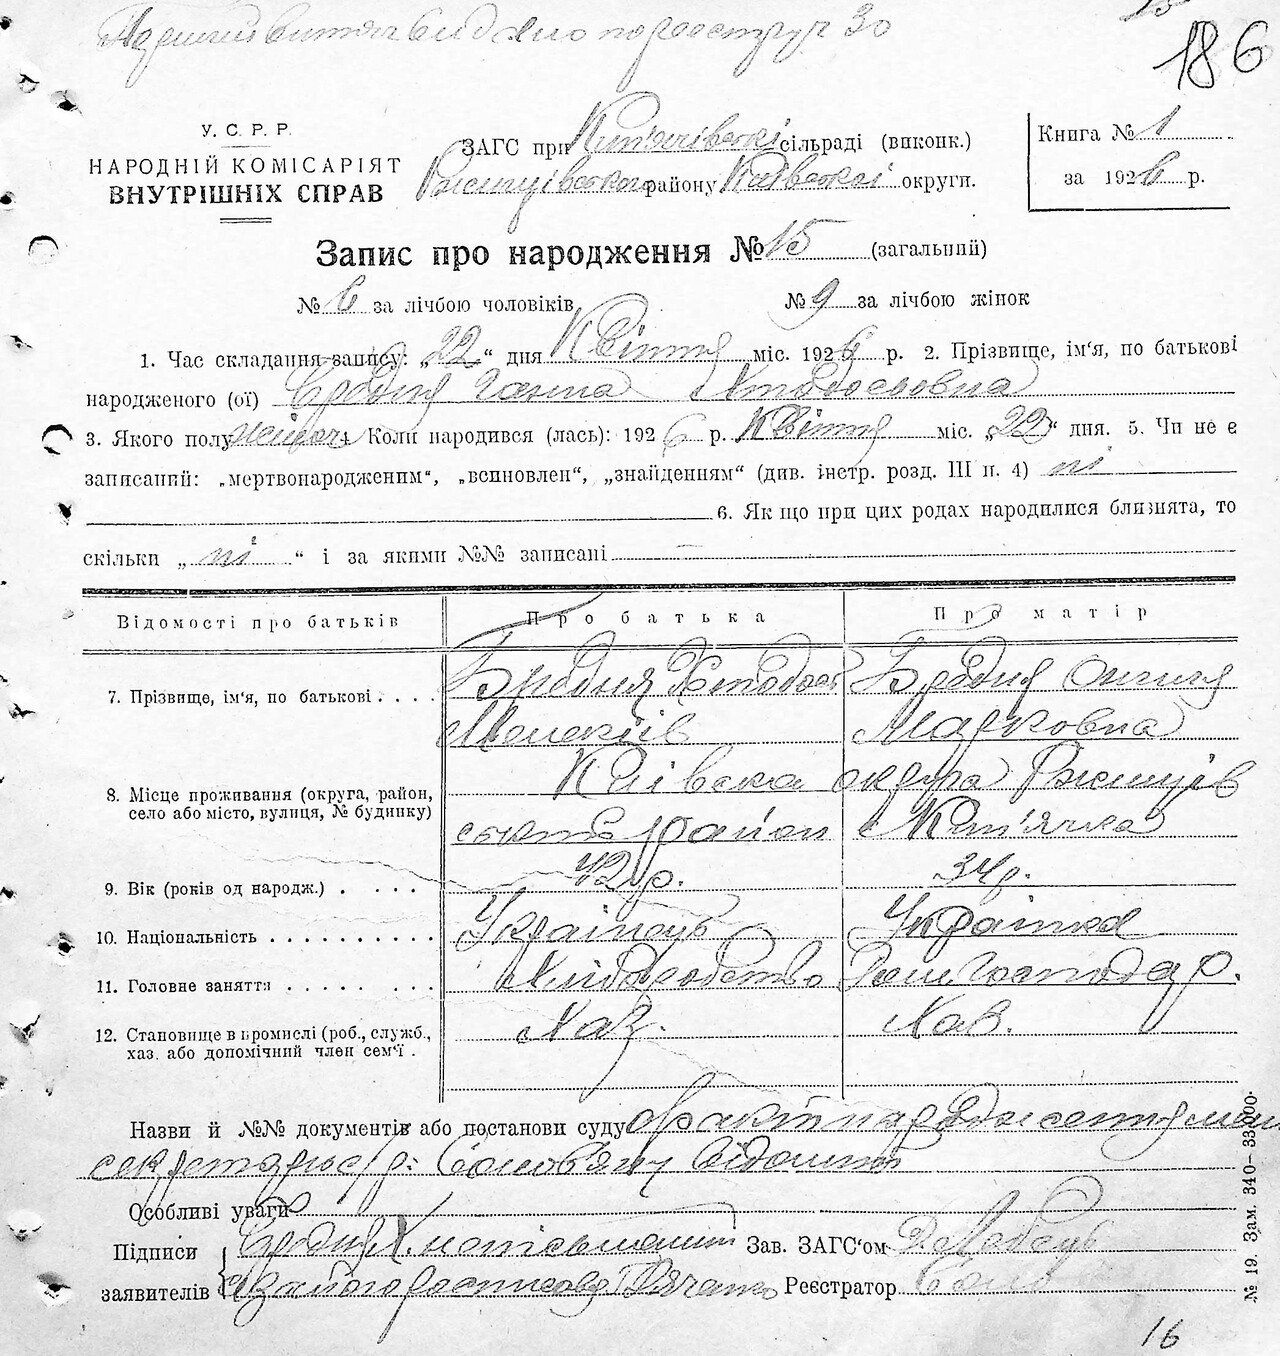 186
У. С. Р. Р.
НАРОДНІЙ КОМІСАРІЯТ
ВНУТРІШНІХ СПРАВ
ЗАГС при сільраді (виконк.)
району Київської округи.
Книга № 1
за 1926 р.
Запис про народження № 15 (загальний)
№ 6 за лічбою чоловіків № 9 за лічбою жінок
1. Час складання запису: „22“ дня Квітня міс. 1926 р. 2. Прізвище, ім‘я, по батькові
народженого (ої) Бредня Ганна Хтодосовна
3. Якого полу жіноч 4 Коли народився (лась): 1926 р. Квітня міс. „22“ дня. 5. Чи не є
записаний: „мертвонародженим“, „всиновлен“, „знайденням“ (див. інстр. розд. III п. 4) ні
6. Як що при цих родах народилися близнята, то
скільки „ ні “ і за якими №№ записані —
Відомості про батьків Про батька Про матір
7. Прізвище, ім‘я, по батькові . . . . Бредня Хтодось Бредня
Марковна
8. Місце проживання (округа, район,
село або місто, вулиця, № будинку)
Київска округа Ржищів
район
9. Вік (років од народж.) . . . . 42 р. 34 р.
10. Національність . . . . . . . . . . Українець Українка
11. Головне заняття . . . . . . . . Хліборобство Дом. Господар.
12. Становище в промислі (роб., служб.,
хаз. або допомічний член сем‘ї .
Хаз. Хаз.
Назви й №№ документів або постанови суду
секретарь с/р:
Особливі уваги
Підписи
заявителів
Бредня Х. Зав. ЗАГС‘ом
Реєстратор
№ 19. Зам. 340–33.000.
16